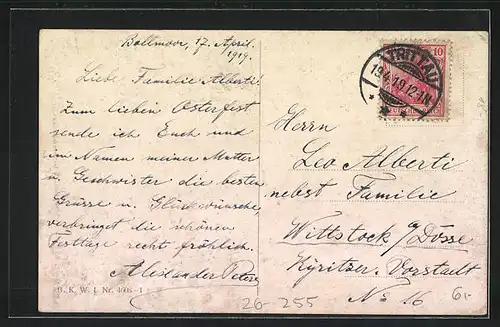 Bollmoor, 17. April.
1919.
Liebe Familie Alberti!
Zum lieben Osterfest
sende ich Euch und
im Namen meiner Mutter
u. Geschwister die besten
Grüsse u. Glückwünsche,
verbringet die schönen
Festtage recht fröhlich.
Alexander Peters
B. K. W. I. Nr. 4608-1
TRITTAU
19.4.19.12-1N.
10
Herrn
Leo Alberti
nebst Familie
Wittstock a/Dosse
Kyritzer-Vorstadt
No 16
26-255
6,-